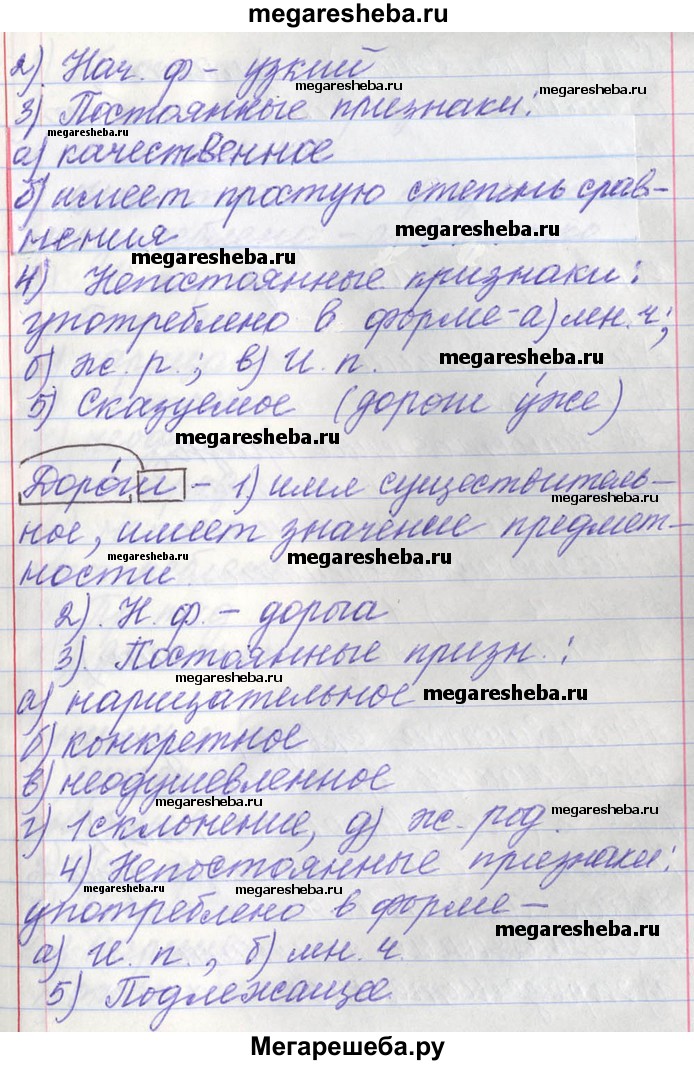 megaresheba.ru
2) Нач. ф - узкий
megaresheba.ru megaresheba.ru
3) Постоянные признаки:
megaresheba.ru megaresheba.ru
а) качественное
б) имеет простую степень срав-
нения megaresheba.ru
megaresheba.ru
4) Непостоянные признаки:
употреблено в форме - а) мн. ч;
б) ж. р.; в) И. п. megaresheba.ru
5) Сказуемое (дороги у́же)
megaresheba.ru
Доро́ги - 1) имя существитель-
ное, имеет значение предмет-
megaresheba.ru megaresheba.ru megaresheba.ru
ности
2). Н. ф. - дорога
3). Постоянные призн.:
а) нарицательное megaresheba.ru
б) конкретное
в) неодушевленное
megaresheba.ru megaresheba.ru
г) 1 склонение, д) ж. род.
4) Непостоянные признаки:
megaresheba.ru megaresheba.ru
употреблено в форме -
megaresheba.ru
а) И. п., б) мн. ч
5) Подлежащее
Мегарешеба.ру